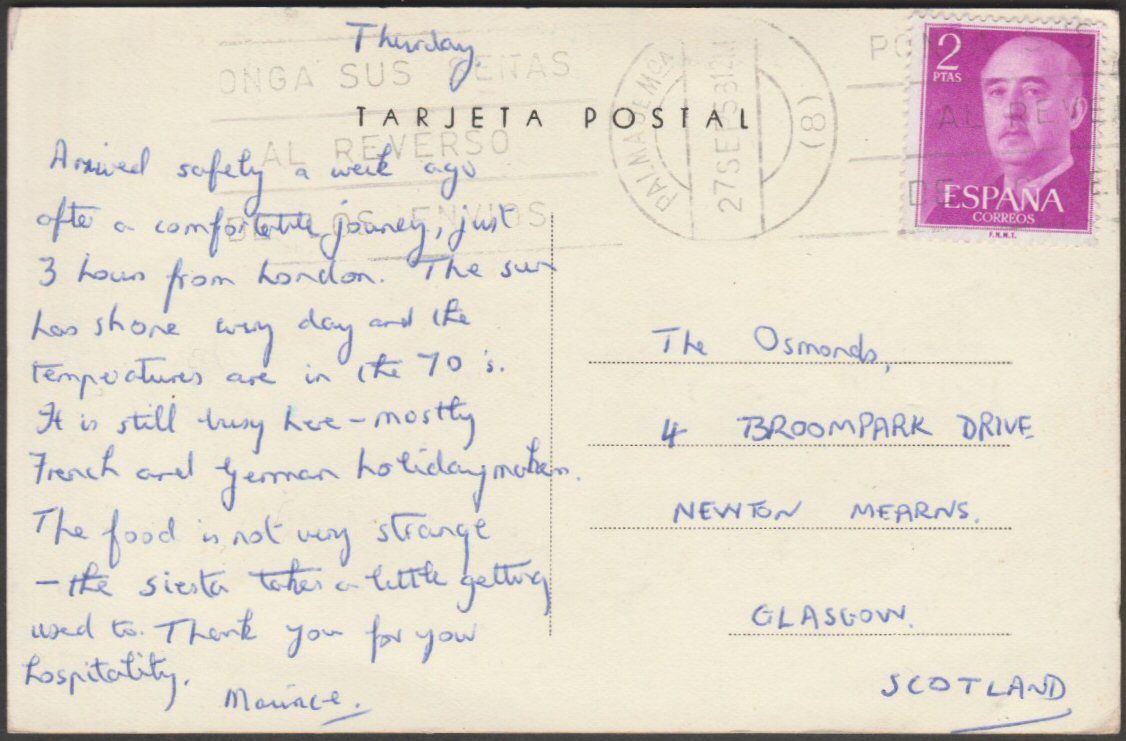 Thursday.
TARJETA POSTAL
ONGA SUS SEÑAS
AL REVERSO
DE LOS ENVIOS
PALMA DE Mca
27 SEP 58 12M
(8)
AL REVE
DE
2
PTAS
ESPAÑA
CORREOS
F.N.M.T.
Arrived safety a week ago
after a comfortable journey, just
3 hours from London. The sun
has shone every day and the
temperatures are in the 70's.
It is still busy here - mostly
French and German holidaymakers.
The food is not very strange
- the siesta takes a little getting
used to. Thank you for your
hospitality.
Maurice.
The Osmonds,
4 BROOMPARK DRIVE
NEWTON MEARNS.
GLASGOW.
SCOTLAND